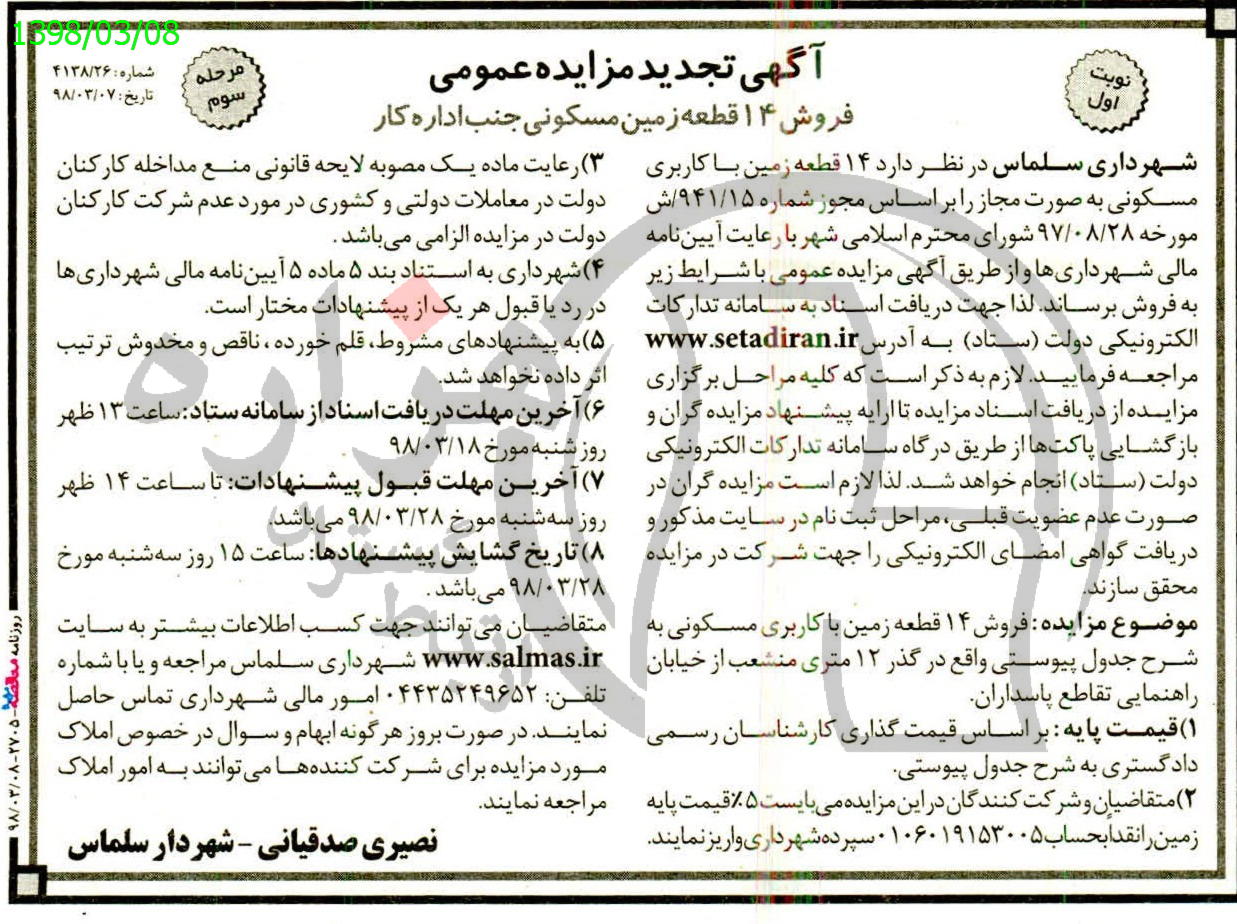 1398/03/08
شماره: ۴۱۳۸/۲۶
تاریخ: ۹۸/۰۳/۰۷
مرحله سوم
نوبت اول
آگهی تجدید مزایده عمومی
فروش ۱۴ قطعه زمین مسکونی جنب اداره کار
شهرداری سلماس در نظر دارد ۱۴ قطعه زمین با کاربری
مسکونی به صورت مجاز را بر اساس مجوز شماره ۹۴۱/۱۵/ش
مورخه ۹۷/۰۸/۲۸ شورای محترم اسلامی شهر با رعایت آیین‌نامه
مالی شهرداری‌ها و از طریق آگهی مزایده عمومی با شرایط زیر
به فروش برساند. لذا جهت دریافت اسناد به سامانه تدارکات
الکترونیکی دولت (ستاد) به آدرس www.setadiran.ir
مراجعه فرمایید. لازم به ذکر است که کلیه مراحل برگزاری
مزایده از دریافت اسناد مزایده تا ارایه پیشنهاد مزایده گران و
بازگشایی پاکت‌ها از طریق درگاه سامانه تدارکات الکترونیکی
دولت (ستاد) انجام خواهد شد. لذا لازم است مزایده گران در
صورت عدم عضویت قبلی، مراحل ثبت نام در سایت مذکور و
دریافت گواهی امضای الکترونیکی را جهت شرکت در مزایده
محقق سازند.
موضوع مزایده: فروش ۱۴ قطعه زمین با کاربری مسکونی به
شرح جدول پیوستی واقع در گذر ۱۲ متری منشعب از خیابان
راهنمایی تقاطع پاسداران.
۱) قیمت پایه: بر اساس قیمت گذاری کارشناسان رسمی
دادگستری به شرح جدول پیوستی.
۲) متقاضیان و شرکت کنندگان در این مزایده می‌بایست ۵٪ قیمت پایه
زمین را نقداً بحساب ۰۱۰۶۰۱۹۱۵۳۰۰۵ سپرده شهرداری واریز نمایند.
۳) رعایت ماده یک مصوبه لایحه قانونی منع مداخله کارکنان
دولت در معاملات دولتی و کشوری در مورد عدم شرکت کارکنان
دولت در مزایده الزامی می‌باشد.
۴) شهرداری به استناد بند ۵ ماده ۵ آیین‌نامه مالی شهرداری‌ها
در رد یا قبول هر یک از پیشنهادات مختار است.
۵) به پیشنهادهای مشروط، قلم خورده، ناقص و مخدوش ترتیب
اثر داده نخواهد شد.
۶) آخرین مهلت دریافت اسناد از سامانه ستاد: ساعت ۱۳ ظهر
روز شنبه مورخ ۹۸/۰۳/۱۸
۷) آخرین مهلت قبول پیشنهادات: تا ساعت ۱۴ ظهر
روز سه‌شنبه مورخ ۹۸/۰۳/۲۸ می‌باشد.
۸) تاریخ گشایش پیشنهادها: ساعت ۱۵ روز سه‌شنبه مورخ
۹۸/۰۳/۲۸ می‌باشد.
متقاضیان می‌توانند جهت کسب اطلاعات بیشتر به سایت
www.salmas.ir شهرداری سلماس مراجعه و یا با شماره
تلفن: ۰۴۴۳۵۲۴۹۶۵۲ امور مالی شهرداری تماس حاصل
نمایند. در صورت بروز هرگونه ابهام و سوال در خصوص املاک
مورد مزایده برای شرکت کننده‌ها می‌توانند به امور املاک
مراجعه نمایند.
نصیری صدقیانی - شهردار سلماس
روزنامه مناقصه - ۲۷۰۵ - ۹۸/۰۳/۰۸
هزاره